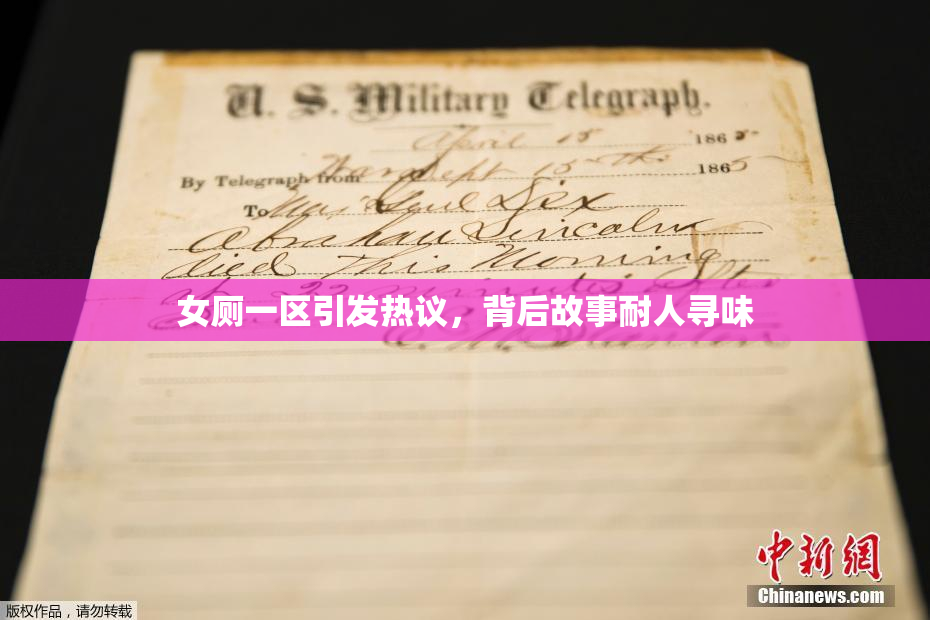 U. S. Military Telegraph.
April 15 1865
By Telegraph from War Dept 15th 1865
To Maj Genl Dix
Abraham Lincoln
died This Morning
at 22 minutes after
女厕一区引发热议，背后故事耐人寻味
E. M. Stanton
中新网
Chinanews.com
版权作品，请勿转载